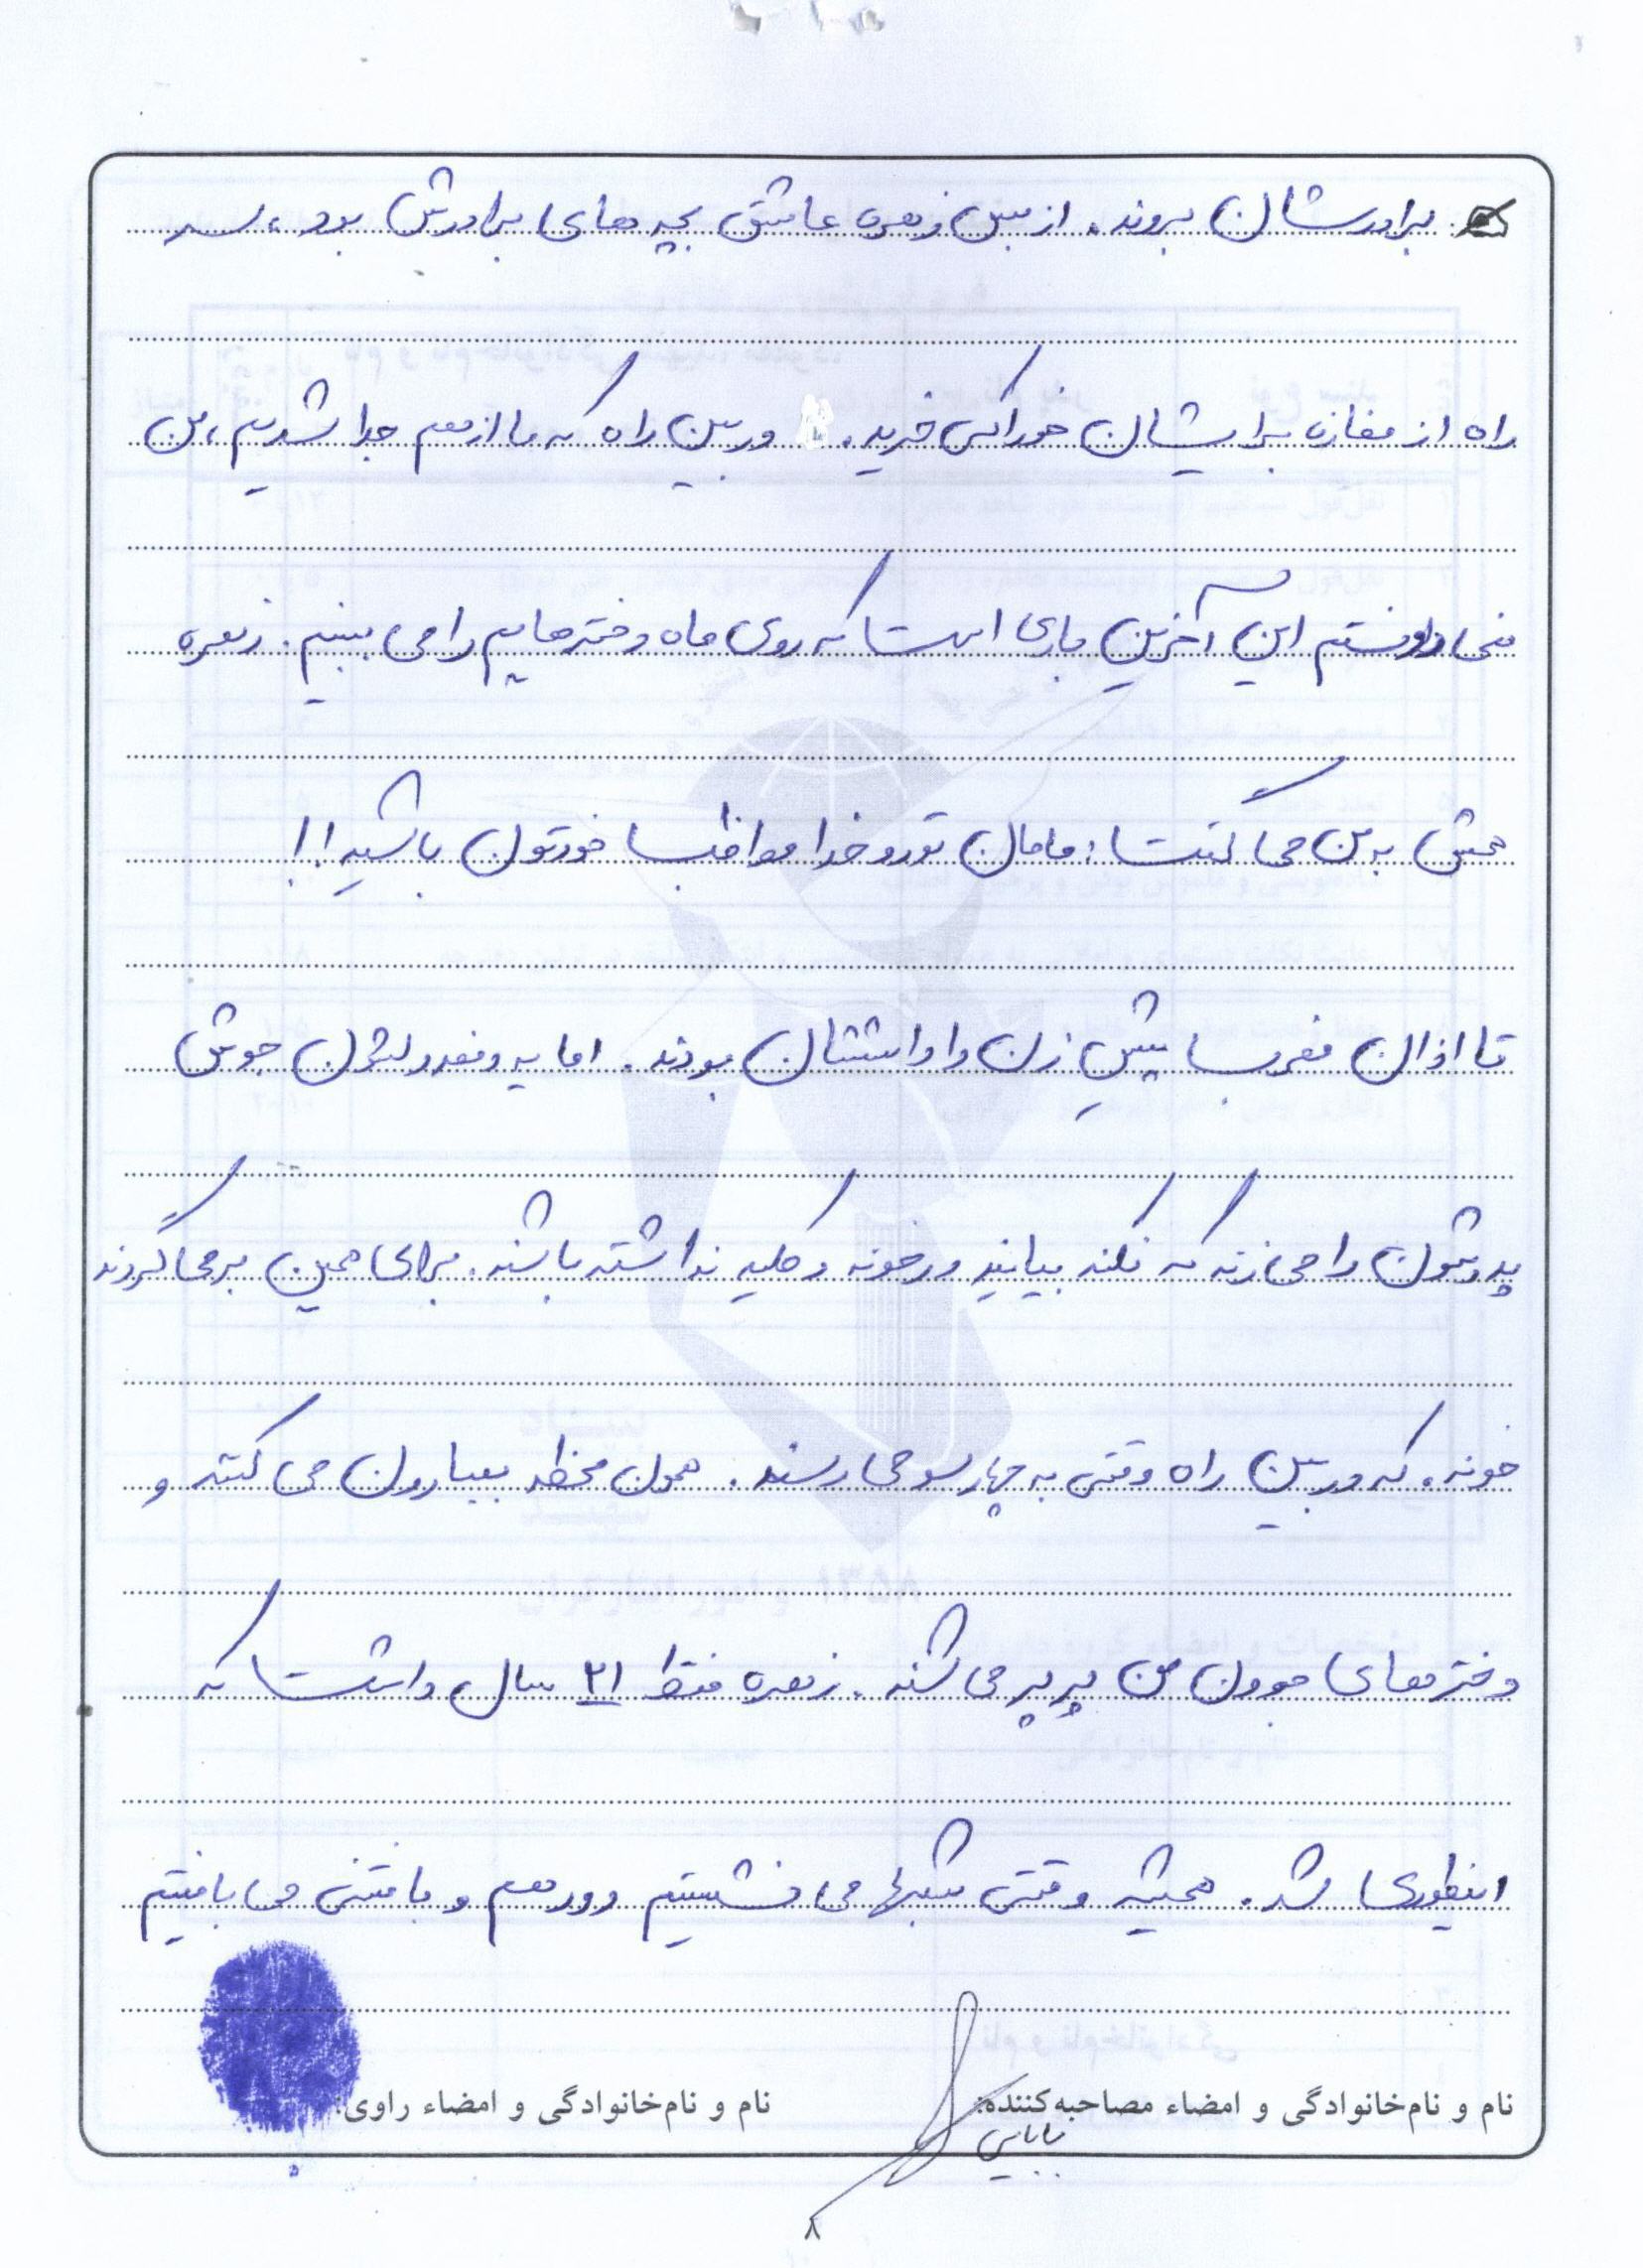 برادرشان بروند. از بس زهره عاشق بچه های برادرش بود، سر
راه از مغازه برایشان خوراکی خرید. در بین راه که ما از هم جدا شدیم، من
نمی دونستم این آخرین باری است که روی ماه دخترهایم را می بینم. زهره
همش به من می گفت: مامان تورو خدا مواظب خودتون باشید!!
تا اذان مغرب پیش زن داداششان بودند. اما یه دفعه دلشون جوش
پدرشون را می زنه که نکنه بیایند در خونه و کلید نداشته باشند. برای همین برمی گردند
خونه. که در بین راه وقتی به چهارسو می رسند. همون لحظه بمبارون می کنند و
دخترهای جوون من پرپر می شند. زهره فقط ۲۱ سال داشت که
اینطوری شد. همیشه وقتی شبها می نشستیم دور هم و بافتنی می بافتیم
نام و نام‌خانوادگی و امضاء مصاحبه‌کننده: نام و نام‌خانوادگی و امضاء راوی:
بابایی
۸